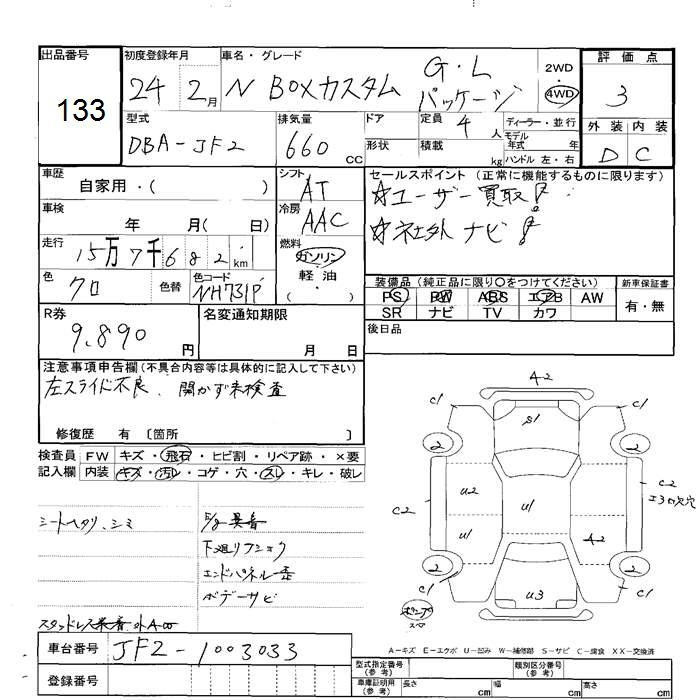 出品番号
133
初度登録年月
24年 2月
車名・グレード
N BOXカスタム G・L パッケージ
2WD
・
4WD
評価点
3
外装 内装
D C
型式
DBA-JF2
排気量
660 CC
ドア
形状
定員 4人
積載 kg
ディーラー・並行
モデル年式 年
ハンドル 左・右
車歴
自家用・( )
シフト
AT
セールスポイント (正常に機能するものに限ります)
☆ユーザー買取!
☆社外ナビ!
車検
年 月( 日)
冷房
AAC
走行
15万7千682km
燃料
ガソリン
・
軽油
・
( )
色
クロ
色替
色コード
NH731P
装備品 (純正品に限り〇をつけてください)
PS PW ABS エアB AW
SR ナビ TV カワ
新車保証書
有・無
R券
9,890 円
名変通知期限
月 日
後日品
注意事項申告欄 (不具合内容等は具体的に記入して下さい)
左スライド不良、開かず未検査
修復歴 有 〔箇所 〕
検査員記入欄
FW キズ・飛石・ヒビ割・リペア跡・×要
内装 キズ・汚レ・コゲ・穴・スレ・キレ・破レ
シートヘタリ、シミ
下廻りフショク
エンドパネル歪
ボデーサビ
A2
C1
C1
S1
2
2
U2
U1
U1
C2
C2
エプロ穴
A2
2
2
C1
C1
U3
A－キズ E－エクボ U－凹み W－補修跡 S－サビ C－腐食 XX－交換済
車台番号
JF2-1003033
登録番号
型式指定番号
(参考)
類別区分番号
(参考)
車庫証明用
(参考)
長さ cm
幅 cm
高さ cm